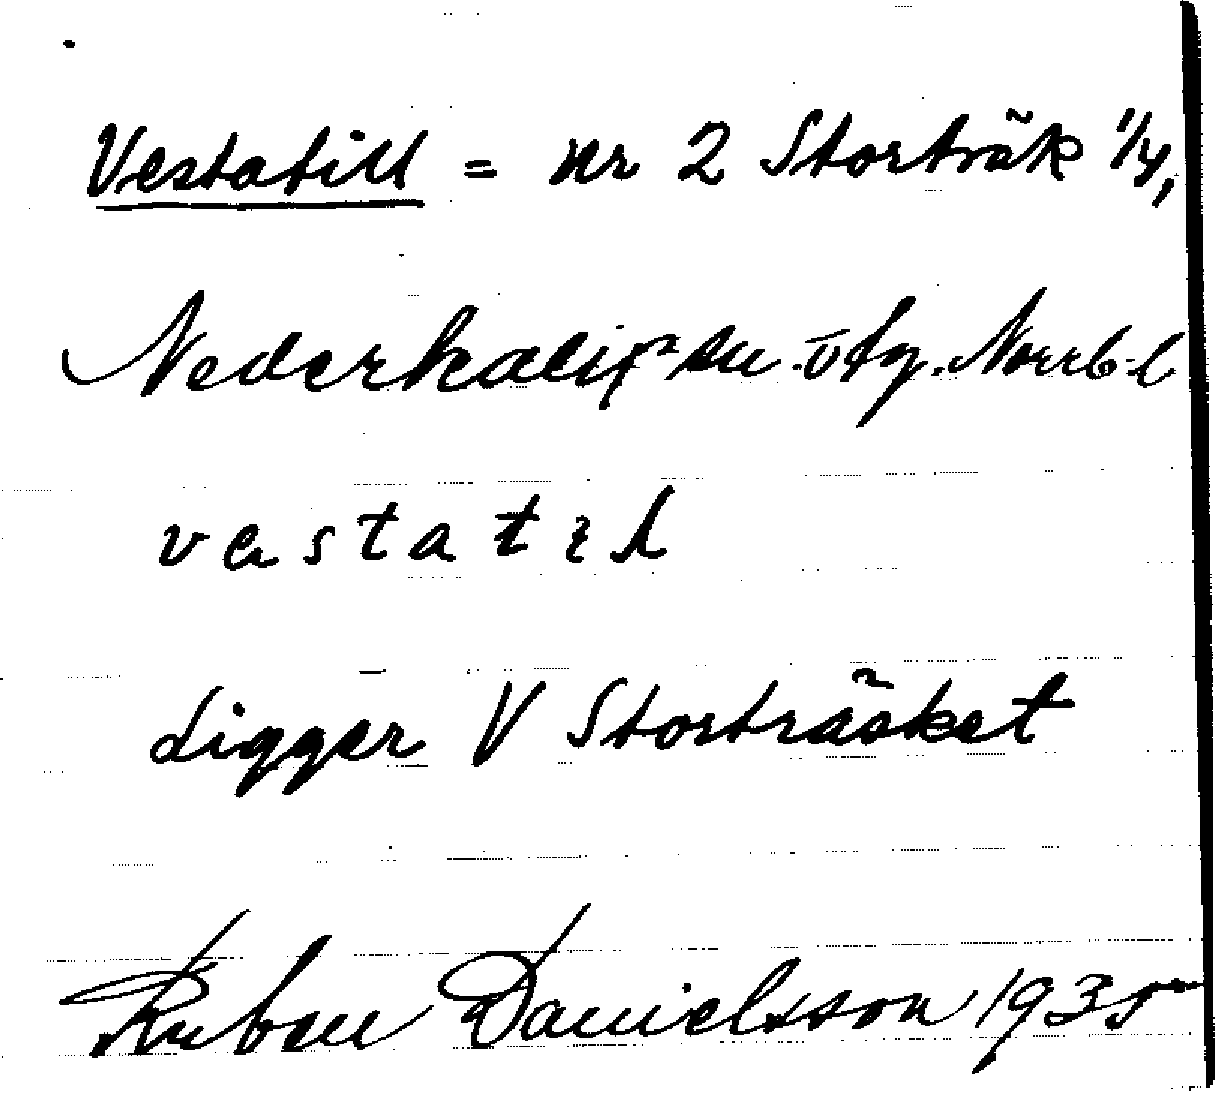 Vestatill = nr 2 Storträsk 1/4,
Nederkalix sn. Norrb. l
vestatil
Ligger V Storträsket
Ruben Danielsson 1935